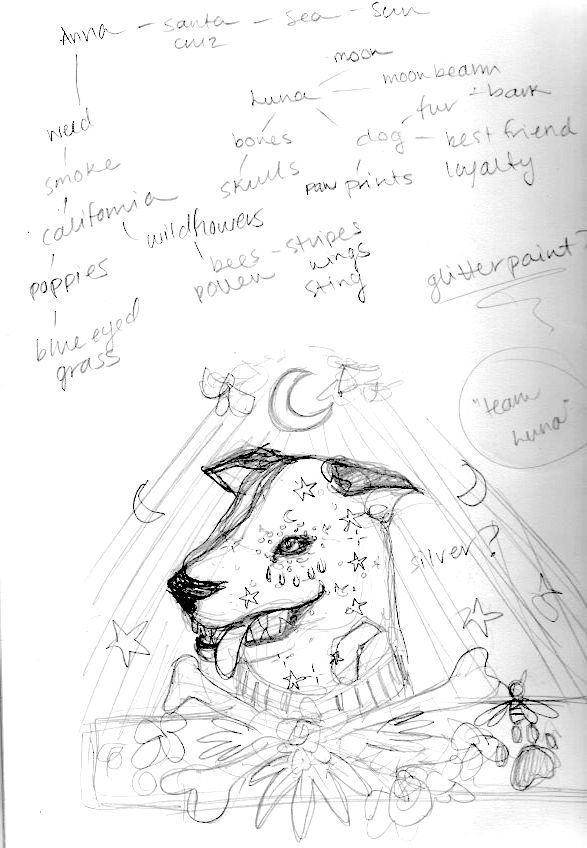 Anna - Santa cruz - Sea - Sun
moon
Luna
moonbeam
fur + bark
weed
bones
dog - best friend
loyalty
smoke
skulls
paw prints
california
wildflowers
poppies
bees - stripes
pollen
wings
sting
glitterpaint?
blue eyed
grass
"team
Luna"
silver?